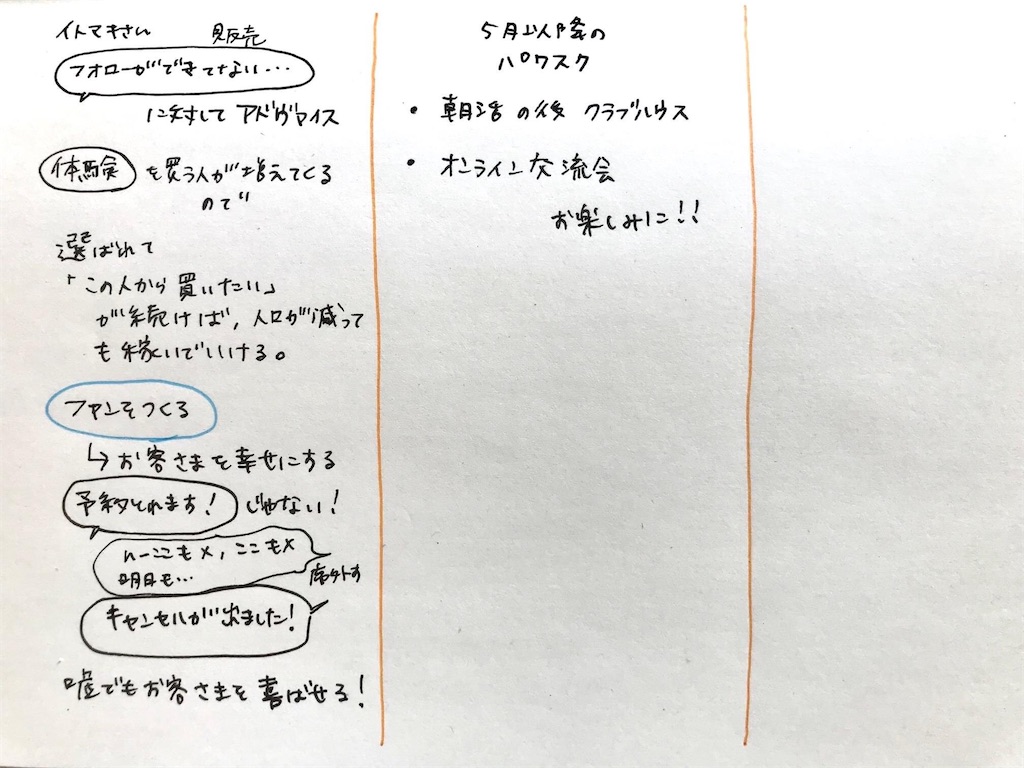 イトマキさん 販売
フォローができてない…
に対して アドヴァイス
体験 を買う人が増えてくる
ので
選ばれて
「この人から買いたい」
が続けば,人口が減って
も稼いでいける。
ファンをつくる
↳お客さまを幸せにする
予約とれます! じゃない!
んーここも×,ここも×
明日も…
席外す
キャンセルが出ました!
嘘でもお客さまを喜ばせる!
5月以降の
パワスク
・ 朝活の後 クラブハウス
・ オンライン交流会
お楽しみに!!